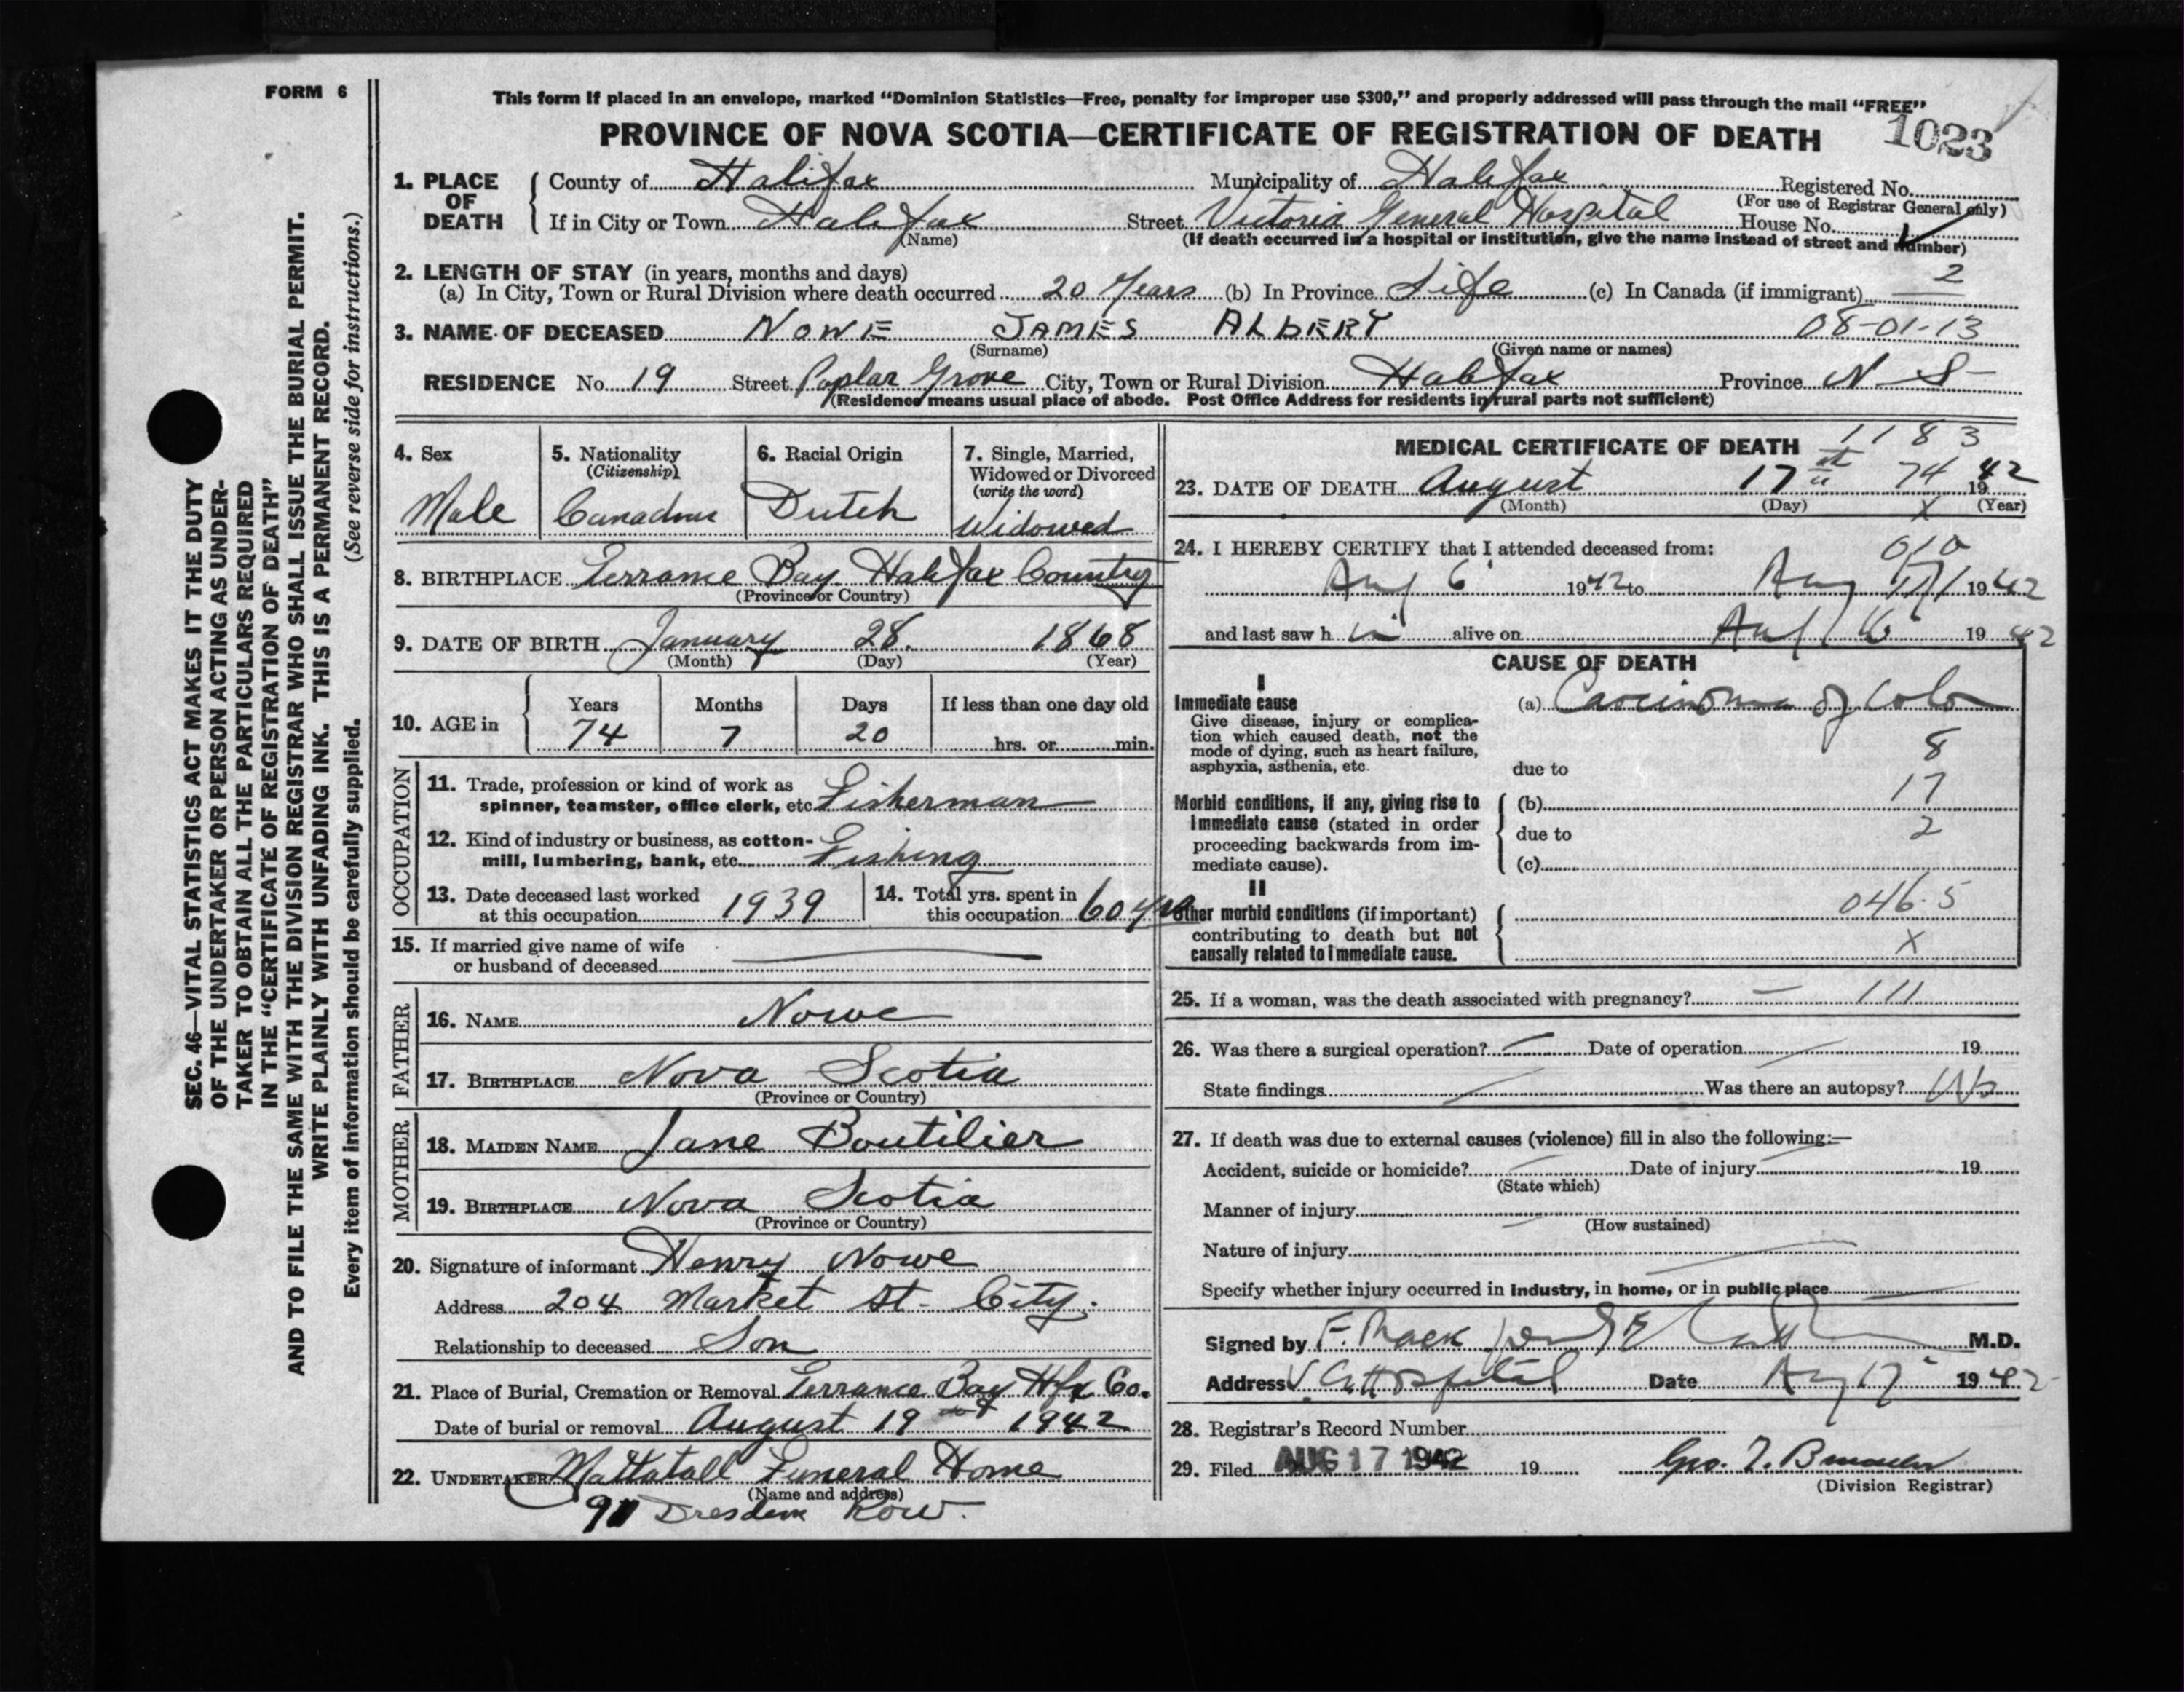 FORM 6
This form if placed in an envelope, marked “Dominion Statistics—Free, penalty for improper use $300,” and properly addressed will pass through the mail “FREE”
PROVINCE OF NOVA SCOTIA—CERTIFICATE OF REGISTRATION OF DEATH
1023
1. PLACE OF DEATH
County of Halifax Municipality of Halifax Registered No.
(For use of Registrar General only)
If in City or Town Halifax Street Victoria General Hospital House No.
(Name) (If death occurred in a hospital or institution, give the name instead of street and number)
2. LENGTH OF STAY (in years, months and days)
(a) In City, Town or Rural Division where death occurred 20 Years (b) In Province Life (c) In Canada (if immigrant) 2
3. NAME OF DECEASED NOWE JAMES ALBERT 08-01-13
(Surname) (Given name or names)
RESIDENCE No. 19 Street Poplar Grove City, Town or Rural Division Halifax Province N-S-
(Residence means usual place of abode. Post Office Address for residents in rural parts not sufficient)
4. Sex
Male
5. Nationality
(Citizenship)
Canadian
6. Racial Origin
Dutch
7. Single, Married,
Widowed or Divorced
(write the word)
Widowed
8. BIRTHPLACE Terrance Bay Halifax Country
(Province or Country)
9. DATE OF BIRTH January 28. 1868
(Month) (Day) (Year)
10. AGE in
Years Months Days If less than one day old
74 7 20 hrs. or min.
OCCUPATION
11. Trade, profession or kind of work as
spinner, teamster, office clerk, etc. Fisherman
12. Kind of industry or business, as cotton-
mill, lumbering, bank, etc. Fishing
13. Date deceased last worked
at this occupation 1939
14. Total yrs. spent in
this occupation 60 yrs
15. If married give name of wife
or husband of deceased
FATHER
16. NAME Nowe
17. BIRTHPLACE Nova Scotia
(Province or Country)
MOTHER
18. MAIDEN NAME Jane Boutilier
19. BIRTHPLACE Nova Scotia
(Province or Country)
20. Signature of informant Henry Nowe
Address 204 Market St- City.
Relationship to deceased Son
21. Place of Burial, Cremation or Removal Terrance Bay Hfx Co.
Date of burial or removal August 19 1942
22. UNDERTAKER Mattatall Funeral Home
(Name and address)
91 Dresden Row.
MEDICAL CERTIFICATE OF DEATH
1183
23. DATE OF DEATH August 17 74 1942
(Month) (Day) X (Year)
24. I HEREBY CERTIFY that I attended deceased from:
010
Aug 6 1942 to Aug 17 1942
and last saw h im alive on Aug 16 1942
CAUSE OF DEATH
I
Immediate cause
Give disease, injury or complica-
tion which caused death, not the
mode of dying, such as heart failure,
asphyxia, asthenia, etc.
(a) Carcinoma of Colon
8
due to
Morbid conditions, if any, giving rise to
immediate cause (stated in order
proceeding backwards from im-
mediate cause).
(b) 17
due to 2
(c)
II
Other morbid conditions (if important)
contributing to death but not
causally related to immediate cause.
046.5
X
25. If a woman, was the death associated with pregnancy? — 111
26. Was there a surgical operation? Date of operation 19
State findings Was there an autopsy? No
27. If death was due to external causes (violence) fill in also the following:—
Accident, suicide or homicide? Date of injury 19
(State which)
Manner of injury
(How sustained)
Nature of injury
Specify whether injury occurred in industry, in home, or in public place
Signed by F. Mack M.D.
Address V. G. Hospital Date Aug 17 1942
28. Registrar's Record Number
29. Filed AUG 17 1942 19
(Division Registrar)
SEC. 46—VITAL STATISTICS ACT MAKES IT THE DUTY
OF THE UNDERTAKER OR PERSON ACTING AS UNDER-
TAKER TO OBTAIN ALL THE PARTICULARS REQUIRED
IN THE “CERTIFICATE OF REGISTRATION OF DEATH”
AND TO FILE THE SAME WITH THE DIVISION REGISTRAR WHO SHALL ISSUE THE BURIAL PERMIT.
WRITE PLAINLY WITH UNFADING INK. THIS IS A PERMANENT RECORD.
Every item of information should be carefully supplied. (See reverse side for instructions.)